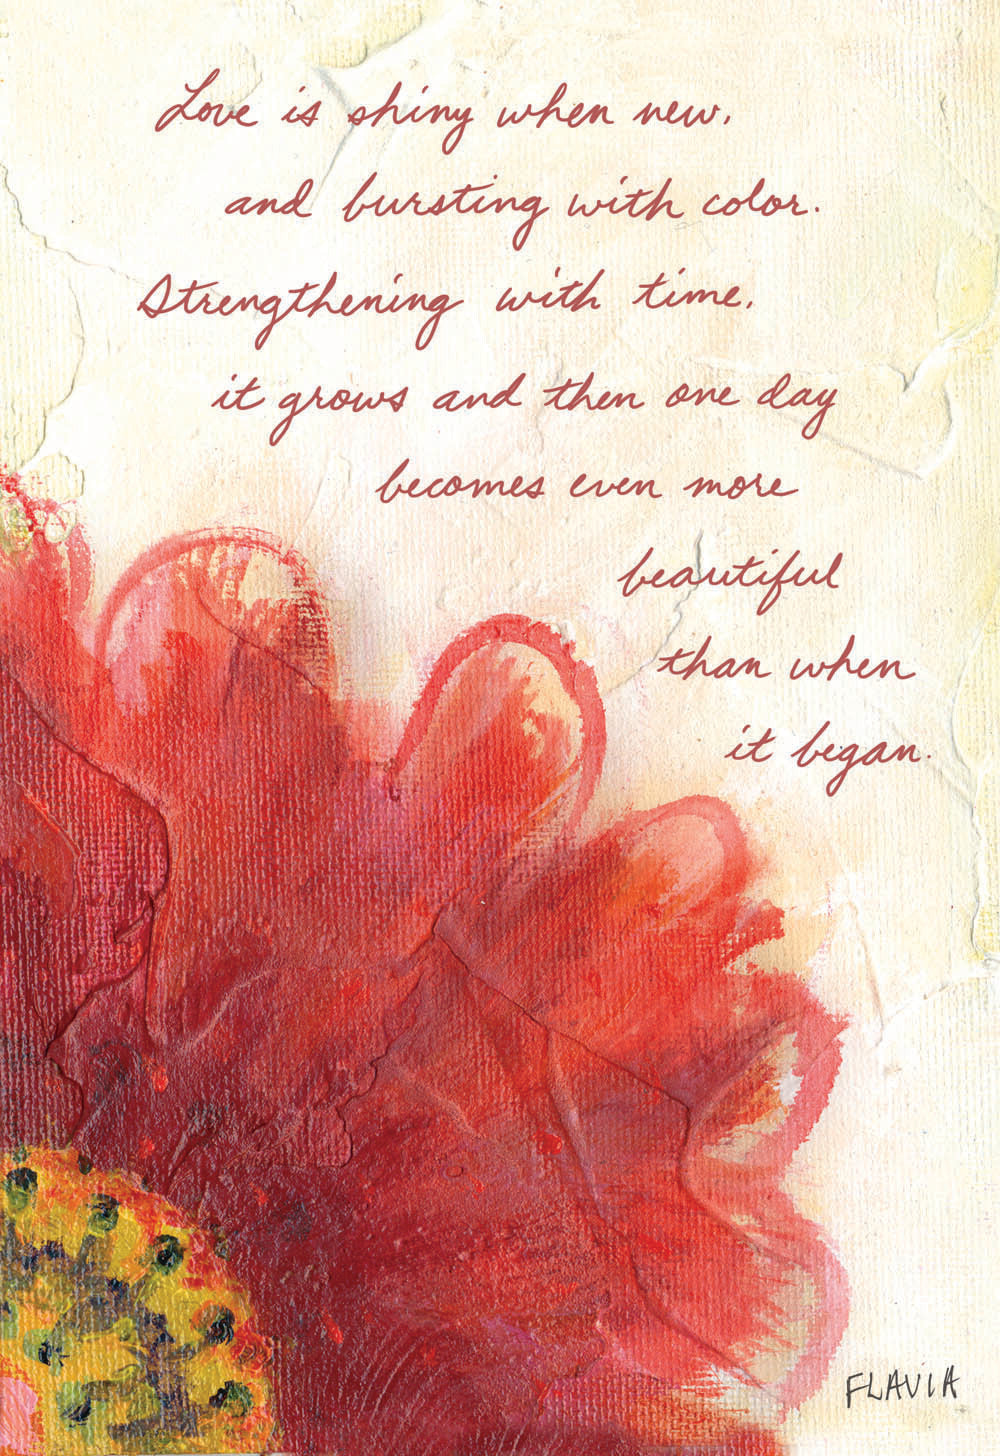 Love is shiny when new,
and bursting with color.
Strengthening with time,
it grows and then one day
becomes even more
beautiful
than when
it began.
FLAVIA